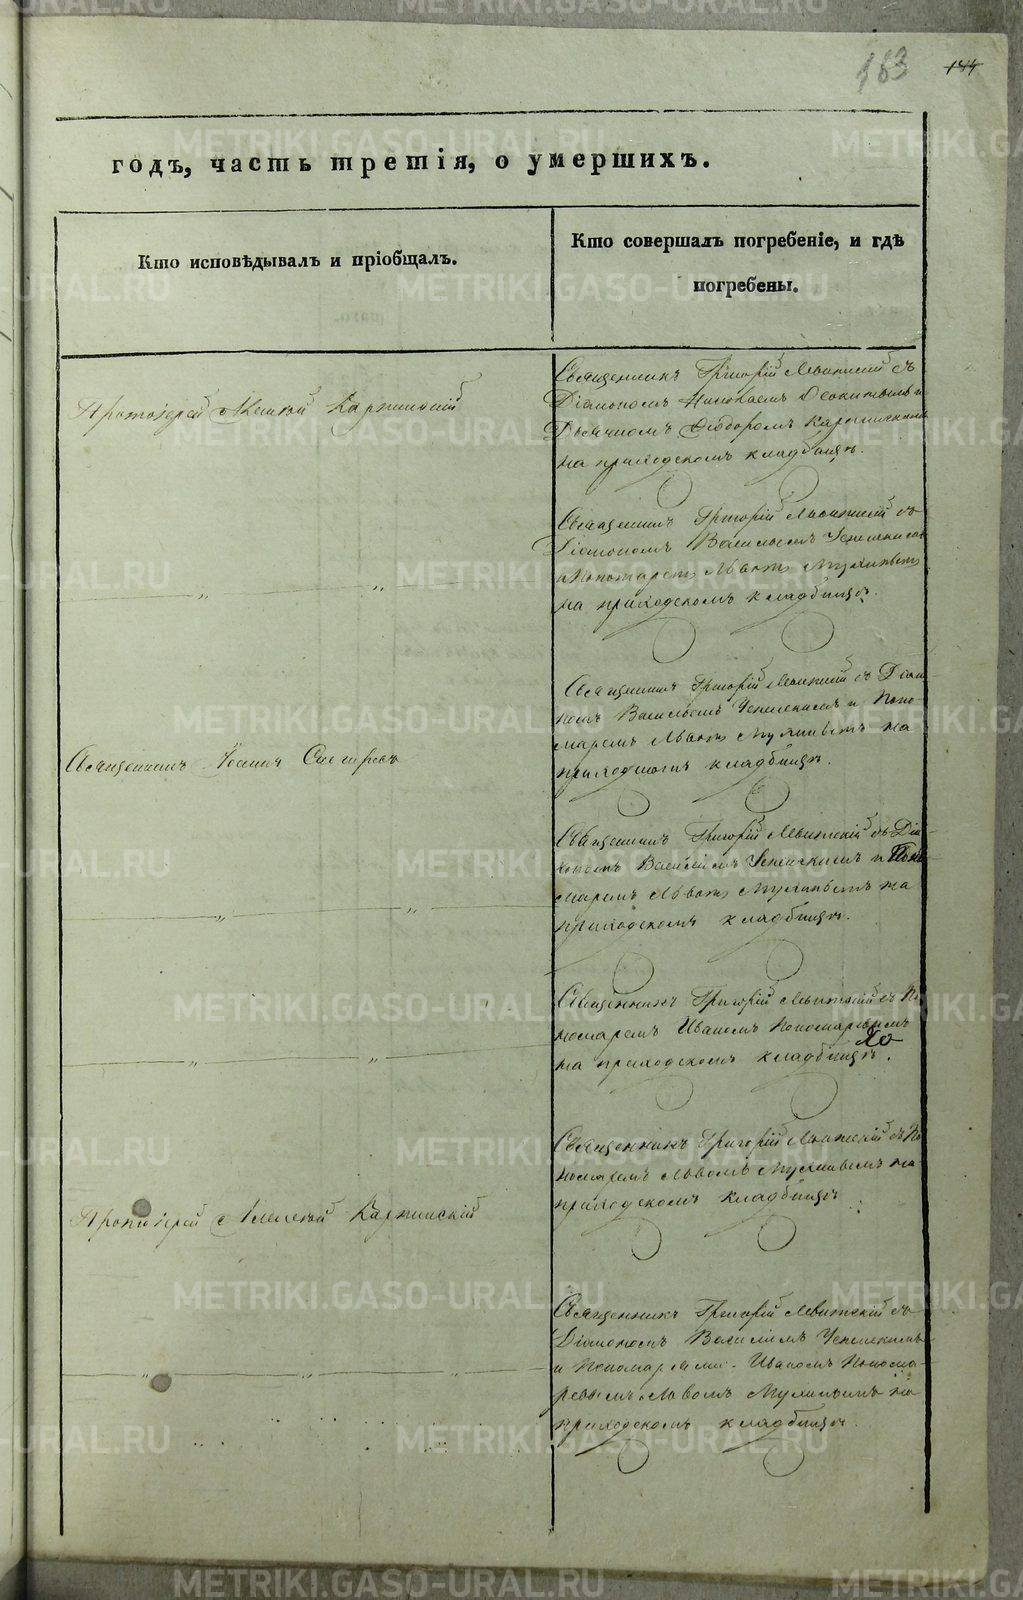 163 144
годъ, часть третія, о умершихъ.
Кто исповѣдывалъ и пріобщалъ.
Кто совершалъ погребеніе, и гдѣ
погребены.
Священникъ Григорій Левитскій съ
Протоіерей Алексѣй Карпинскій
Діакономъ Николаемъ
Дьячкомъ Ѳедоромъ Карпинскимъ
на приходскомъ кладбищѣ.
Священникъ Григорій Левитскій съ
Діакономъ Васильемъ
и Пономаремъ Львомъ
на приходскомъ кладбищѣ.
Священникъ Григорій Левитскій съ Діако-
номъ Васильемъ и Поно-
маремъ Львомъ на
Священникъ Іоаннъ Снегиревъ
приходскомъ кладбищѣ.
Священникъ Григорій Левитскій съ Діа-
кономъ Василіемъ и Поно-
маремъ Львомъ на
приходскомъ кладбищѣ.
Священникъ Григорій Левитскій съ По-
номаремъ Иваномъ Пономаревымъ
на приходскомъ кладбищѣ.
Священникъ Григорій Левитскій съ По-
номаремъ Львомъ на
приходскомъ кладбищѣ
Протоіерей Алексѣй Карпинскій
Священникъ Григорій Левитскій съ
Діакономъ Василіемъ
и Пономарями Иваномъ Понома-
ревымъ и Львомъ на
приходскомъ кладбищѣ.
METRIKI.GASO-URAL.RU